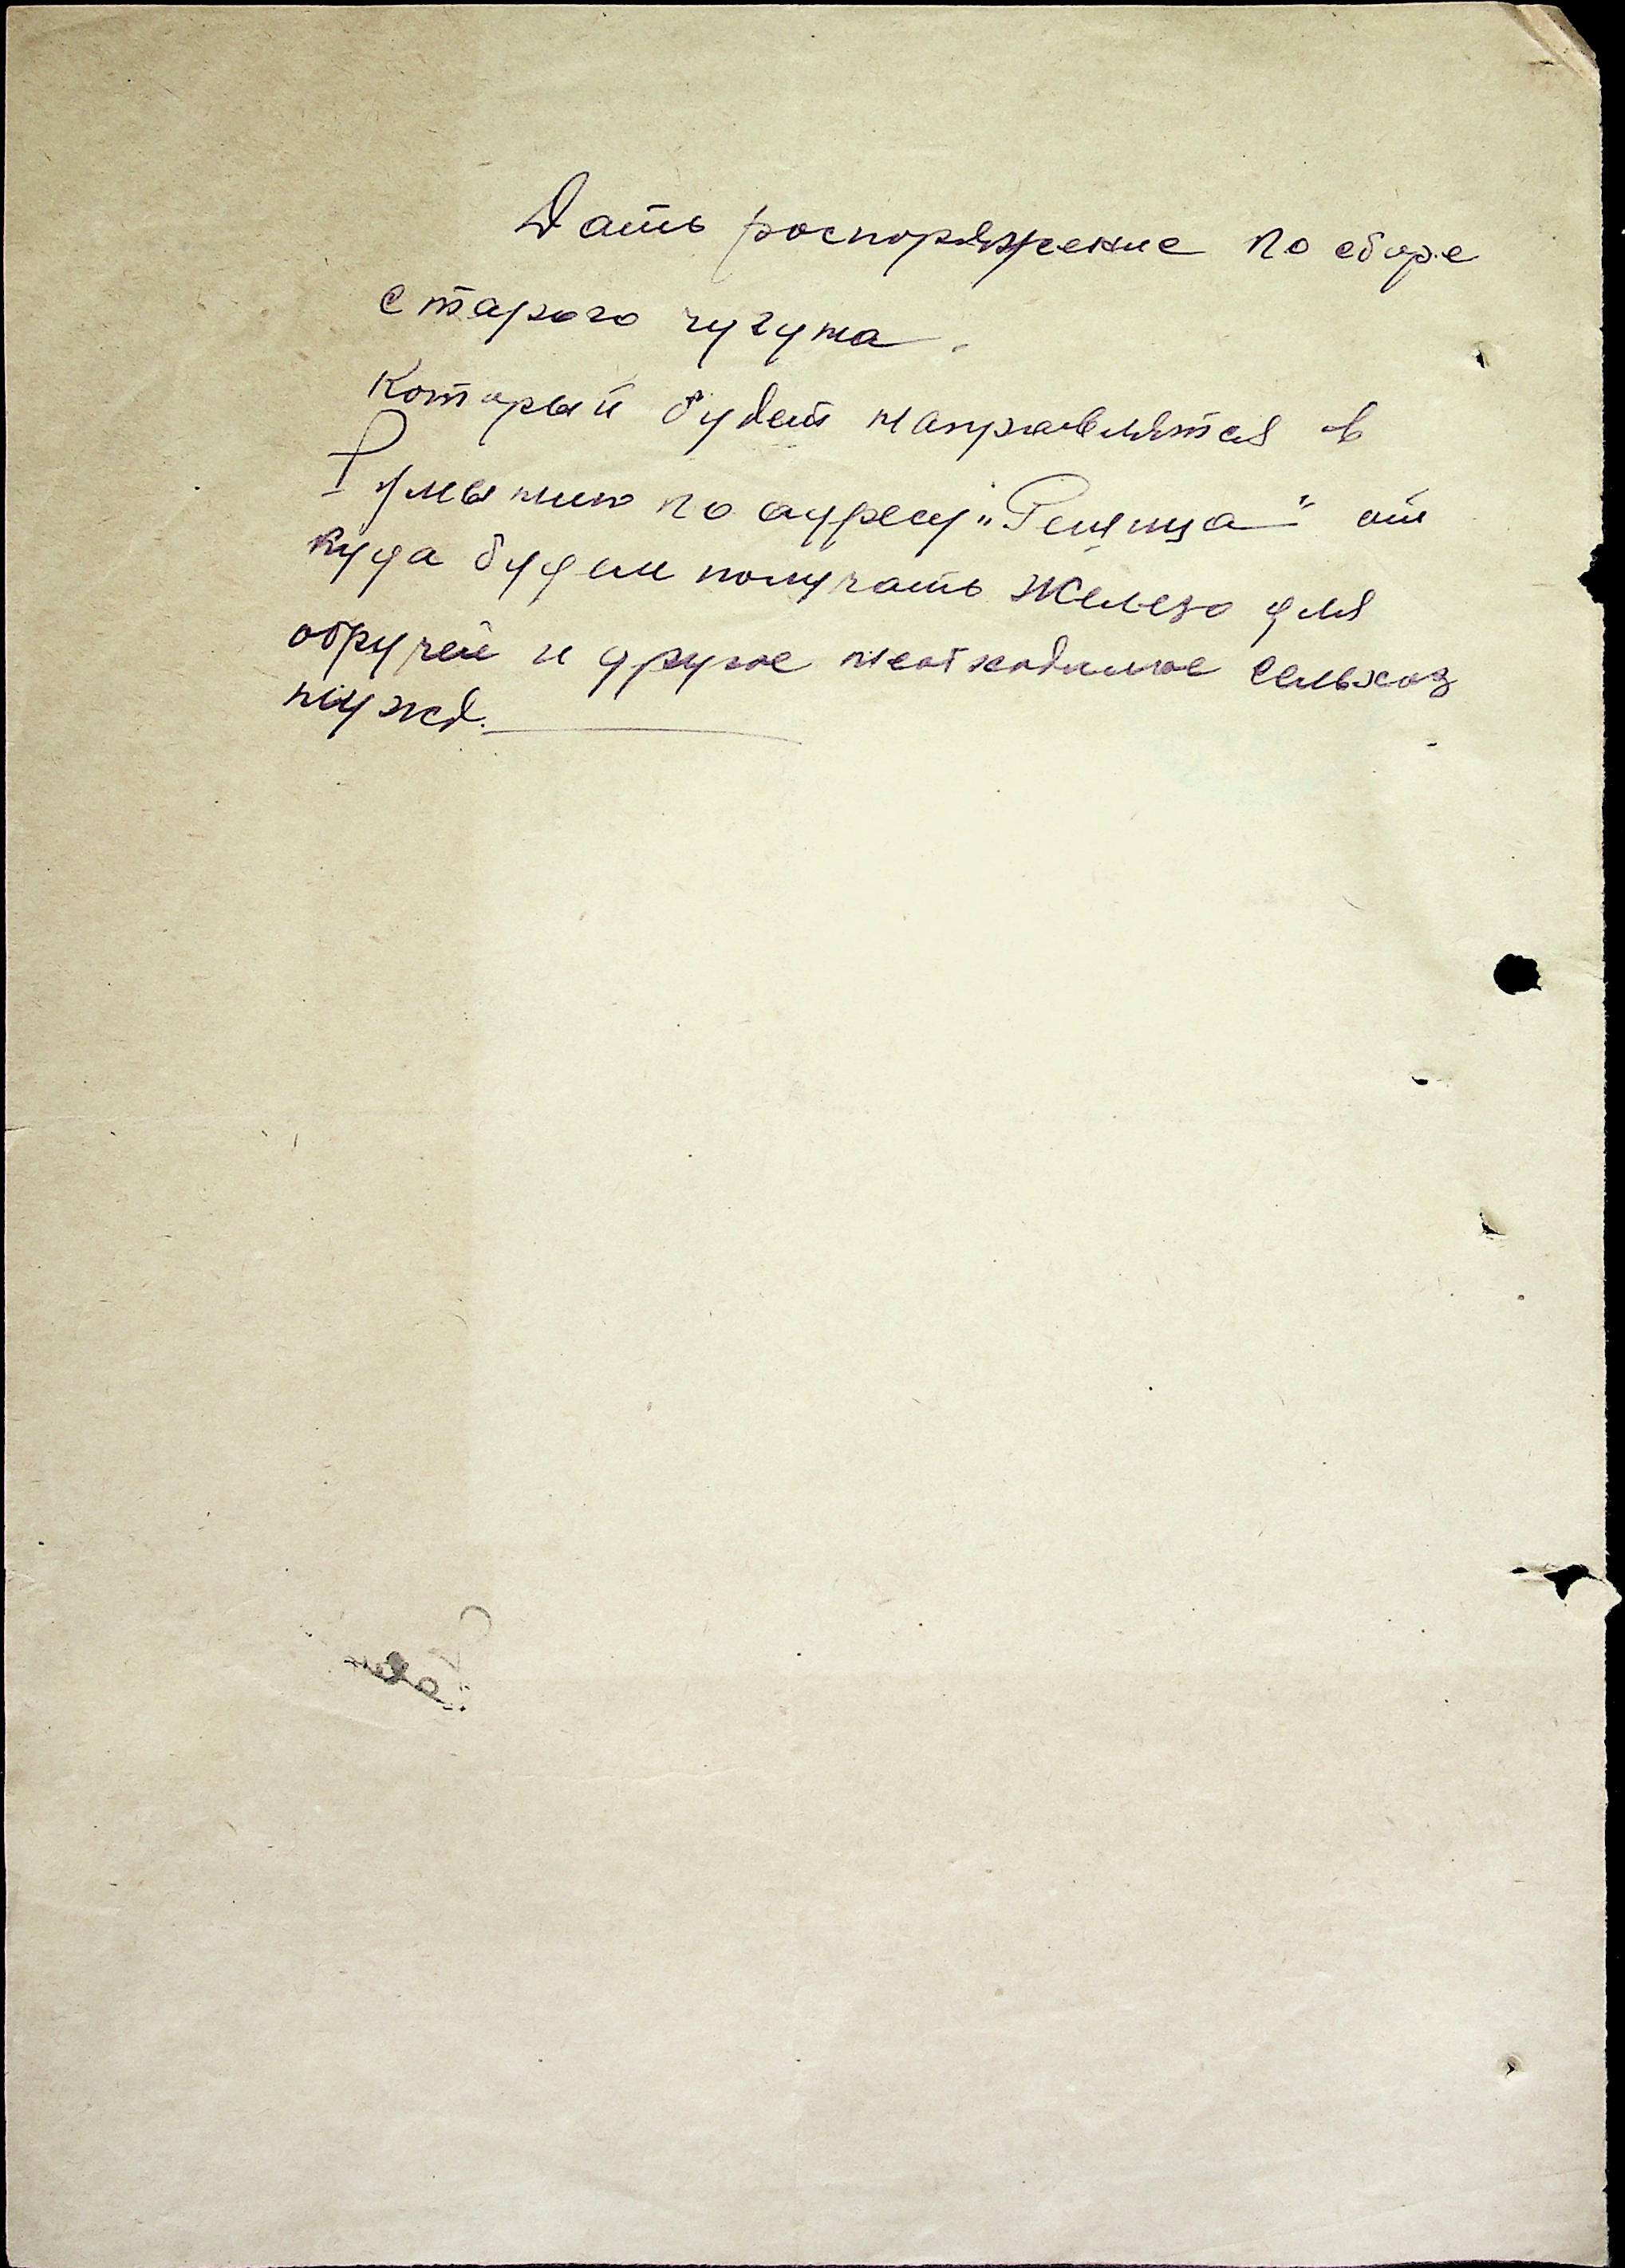 Дать роспоряжение по сборе
старого чугуна.
который будет направлятся в
Румынию по адресу „Решица" от
куда будем получать железо для
обручей и другое необходимое сельхоз
нужд.